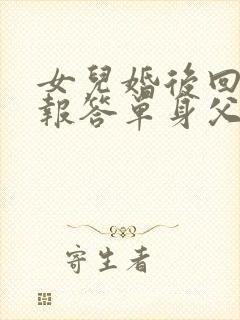 女兒婚後回
報答單身父
寄生者